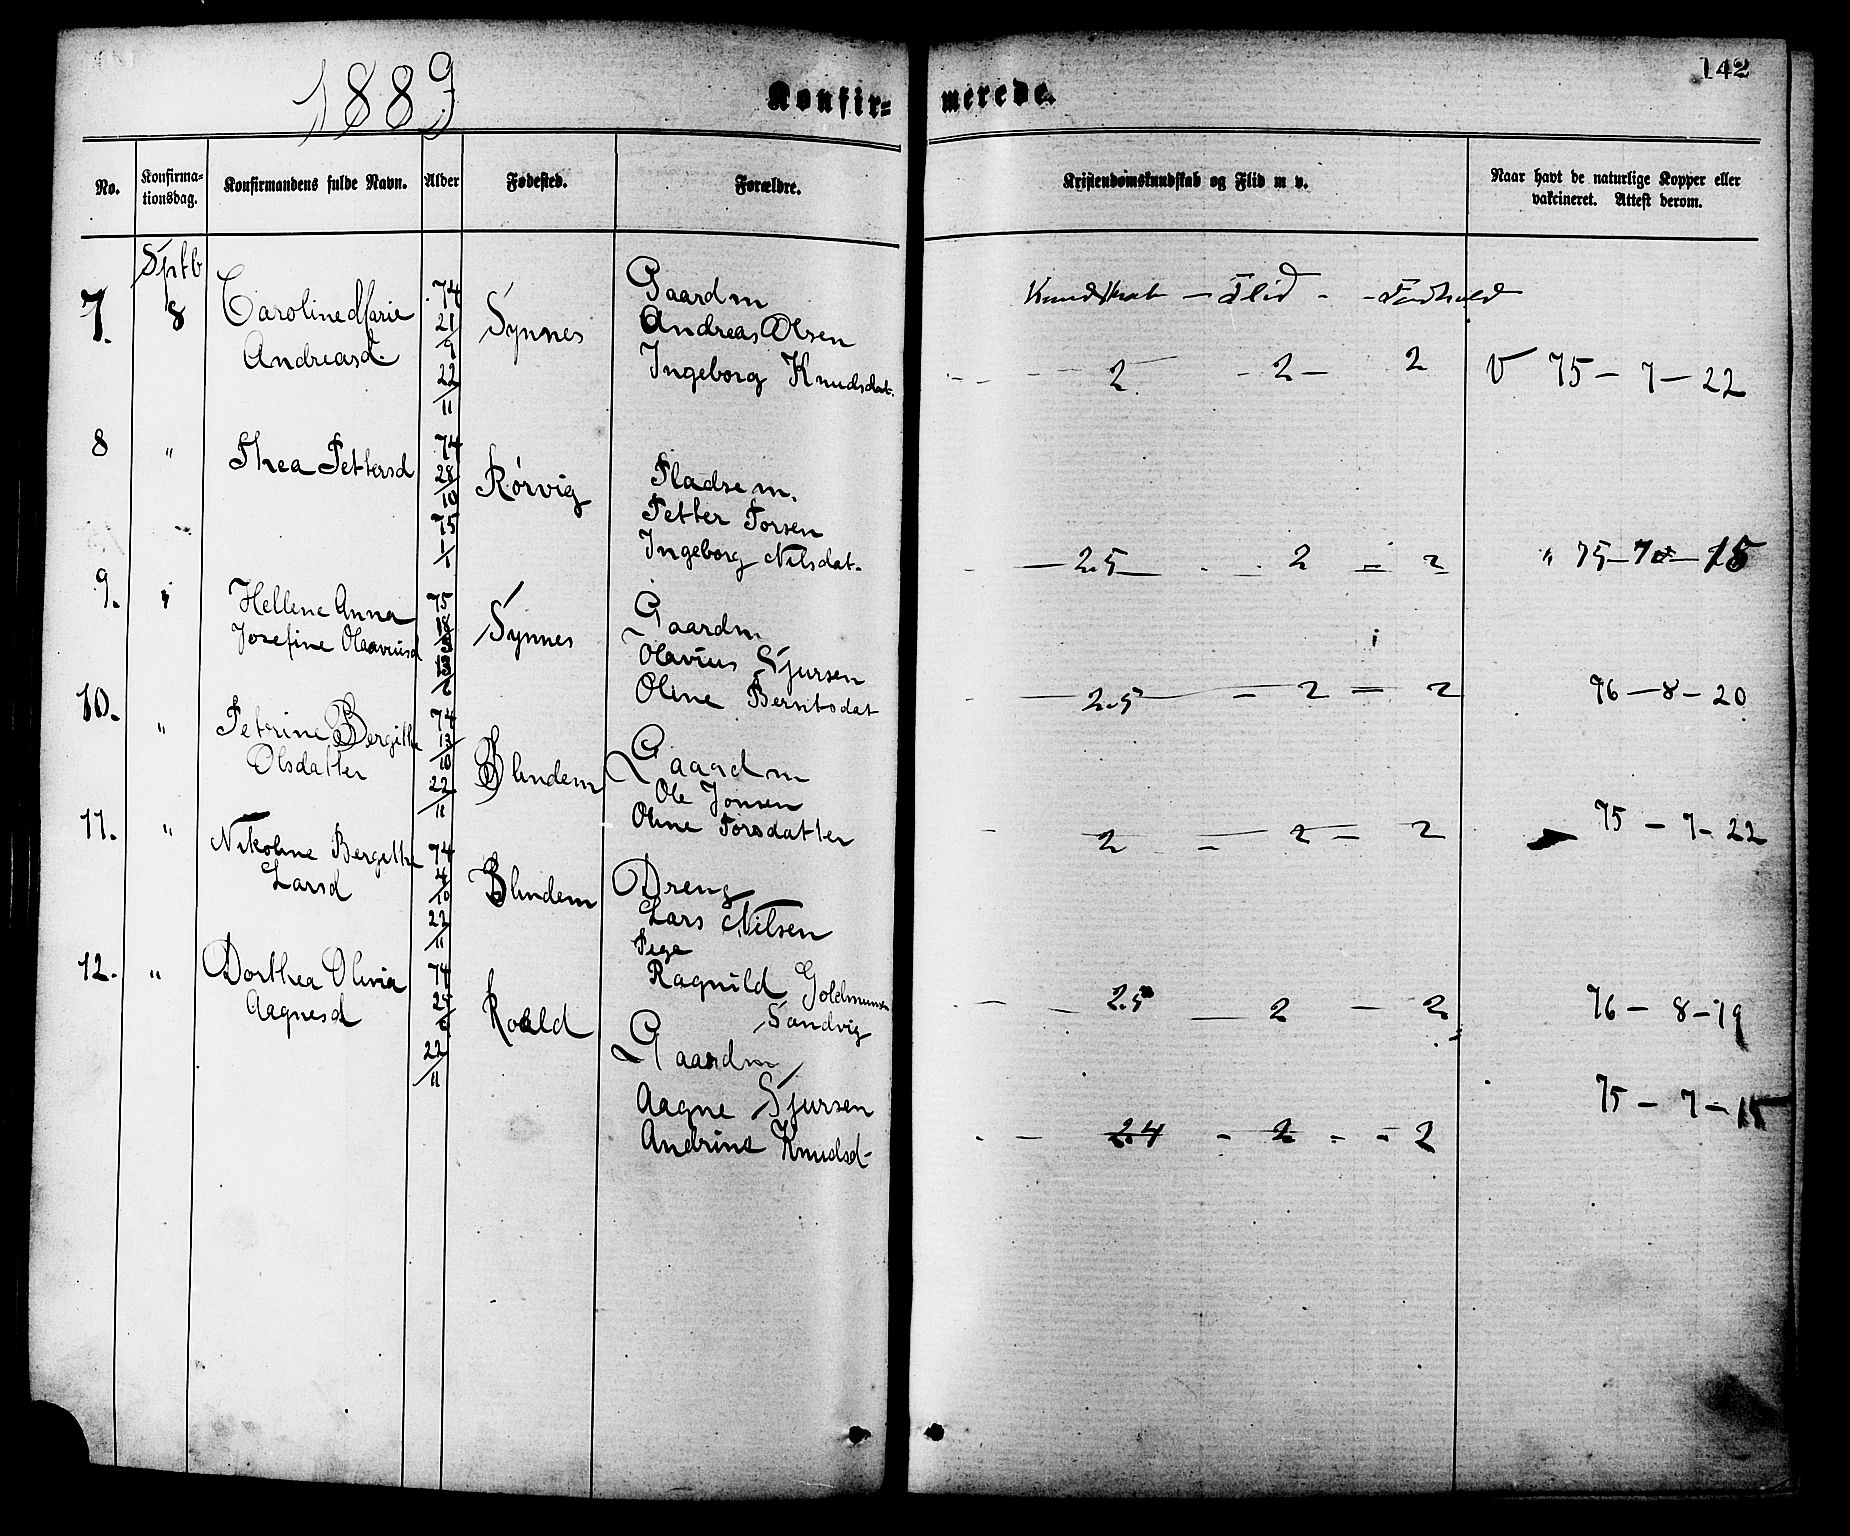 1889
Konfir=
merede.
142
No.
Konfirma=
tionsdag.
Konfirmandens fulde Navn.
Alder
Fødested.
Forældre.
Kristendomskundskab og Flid m v.
Naar havt de naturlige Kopper eller
vakcineret. Attest derom.
Sptb
7.
8
Caroline Marie
Andreasd.
74
21/9
22/11
Synnes
Gaardm
Andreas Olsen
Ingeborg Knudsdat.
Kundskab — Flid - - Forhold
2 - 2 — 2
V 75 — 7 — 22
8
"
Thea Pettersd
74
28/10
75
1/1
Rørvig
Pladsem.
Petter Torsen
Ingeborg Nilsdat.
— 2.5 — 2 = 2
" 75 — 7 — 15
9.
"
Hellene Anna
Josefine Olaaviusd
75
Synnes
Gaardm
Olavius Sjursen
Oline Berntsdat
— 2.5 — 2 = 2
76 — 8 — 20
10.
"
Petrine Bergithe
Olsdatter
74
13/10
22/11
Blindem
Gaardm
Ole Jonsen
Oline Torsdatter
2 = 2 — 2
75 — 7 - 22
11.
"
Nikoline Bergithe
Larsd
74
4/10
22/11
Blindem
Dreng
Lars Nilsen
Pige
Ragnild Goldmunsen
Sandvig
— 2.5 — 2 — 2
76 — 8 — 19
12.
"
Dorthea Olivia
Aagnesd
74
22/11
Roald
Gaardm
Aagne Sjursen
Andrine Knudsd-
- — 2.4 - 2 - - 2
75 — 7 — 15